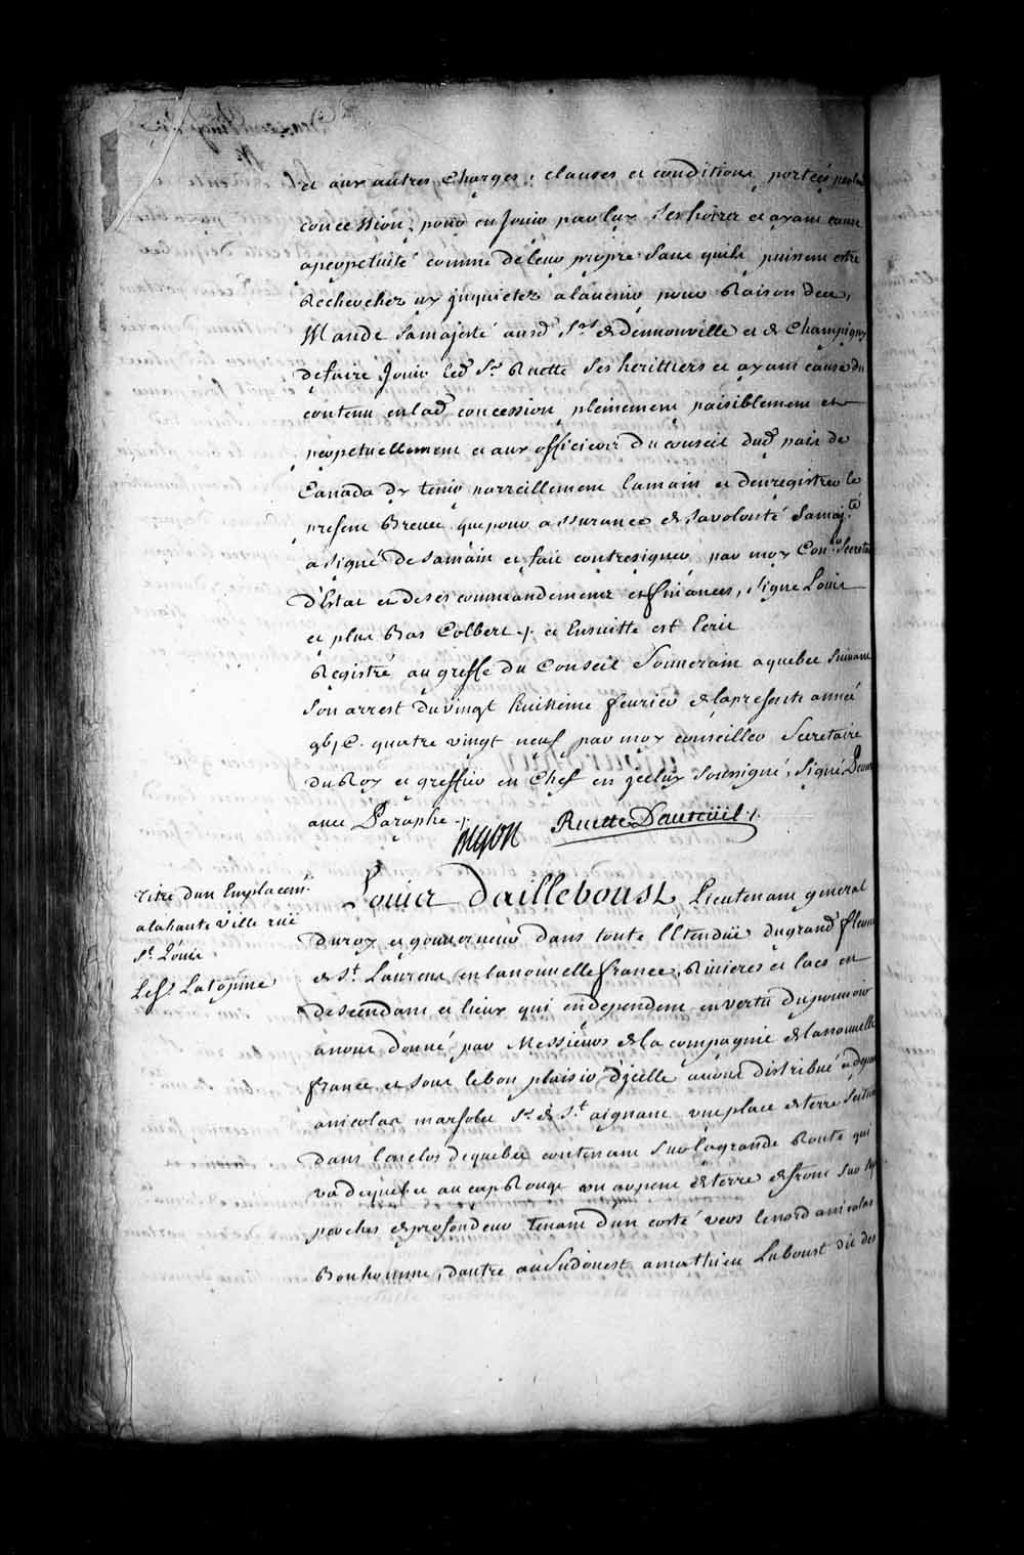 et aux autres Charges, clauses et conditions portées par la
concession, pour en Jouir par luy Ses hoirs et ayans cause
aperpetuité comme deleur propre Sans quils puissent estre
Recherchez ny jnquietez alauenir pour Raison deu,
Mande Samajesté ausd. Srs. de dennonuille et de Champigny
defaire Jouir led. Sr. Ruette Ses herittiers et ayans cause du
contenu enlad. concession pleinement paisiblement et
perpetuellement et aux officiers du conseil dud. pais de
Canada dy tenir parreillement lamain et denregistrer le
present Breuet que pour assurance de Savolonté Samaj.té
a signé de Samain et fait contresigner par moy Con.er Secretaire
d'Estat et deses commandements et finances, signe Louis
et plus Bas Colbert ./. et Ensuitte est Ecrit
Registré au greffe du Conseil Souuerain a quebec Suiuant
Son arrest du vingt huitieme feurier de lapresente année
gbjC. quatre vingt neuf par moy conseiller Secretaire
du Roy et greffier en Chef en jceluy Soussigné, Signé Peuuret
auec Paraphe ./.
Begon Ruette Dauteüil ./.
Titre dun Emplacem.t
alahaute Ville ruë
St. Loüis
Les. Latojme
Louis dailleboust Lieutenant general
du roy et gouuerneur dans toute l'Etenduë dugrand fleuue
de St. Laurens en lanouuelle france, Riuieres et lacs en
descendans et lieux qui endependent en vertu dupouuoir
anous donné par Messieurs de la compagnie de lanouuelle
france et sous lebon plaisir d'jcelle auons distribué et departy
anicolas marsolet Sr. de St. aignant vne place de terre Scituée
dans lenclos dequebec contenant Sur lagrande Route qui
va dequebec au cap Rouge vn arpent de terre defront Sur
perches de profondeur tenant dun costé vers lenord anicolas
Bonhomme, dautre au Sudouest amathieu huboust dit des